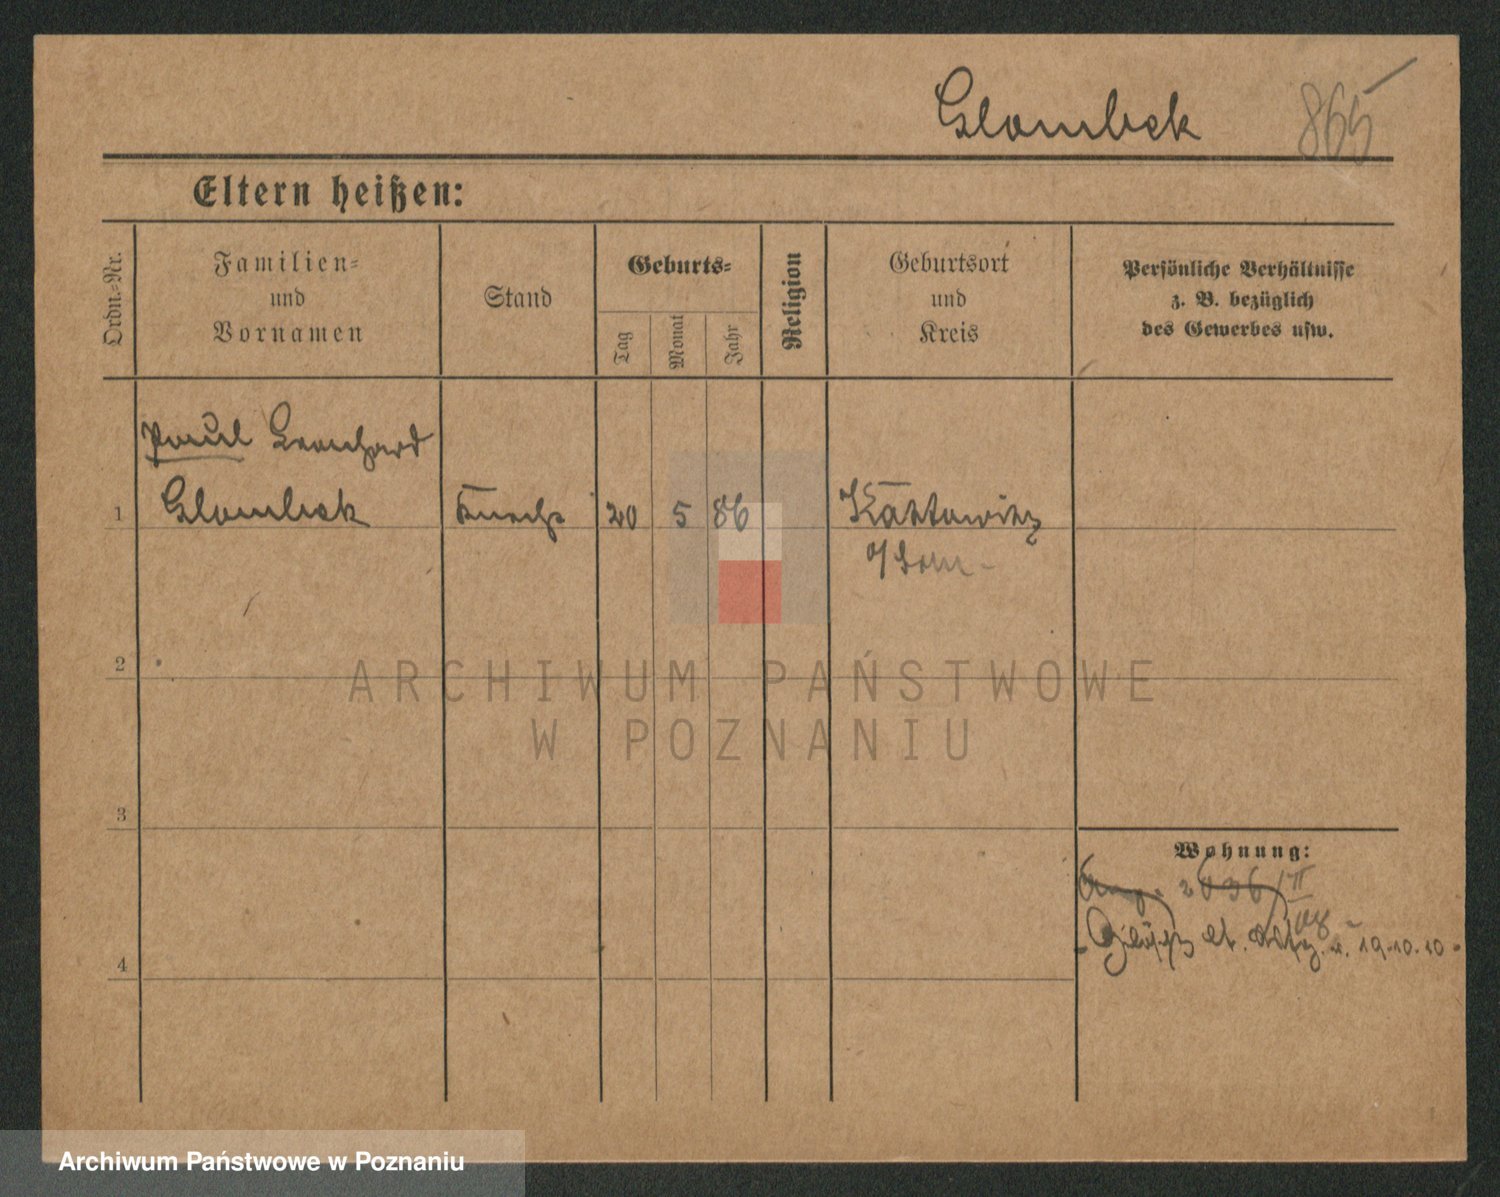 Glombek 865
Eltern heißen:
Ordn.-Nr.
Familien-
und
Vornamen
Stand
Geburts-
Tag
Monat
Jahr
Religion
Geburtsort
und
Kreis
Persönliche Verhältnisse
z. B. bezüglich
des Gewerbes usw.
Paul Leonhard
1 Glombek 20 5 86 Kattowitz
2
ARCHIWUM PAŃSTWOWE
W POZNANIU
3
Wohnung:
4 19.10.10
Archiwum Państwowe w Poznaniu